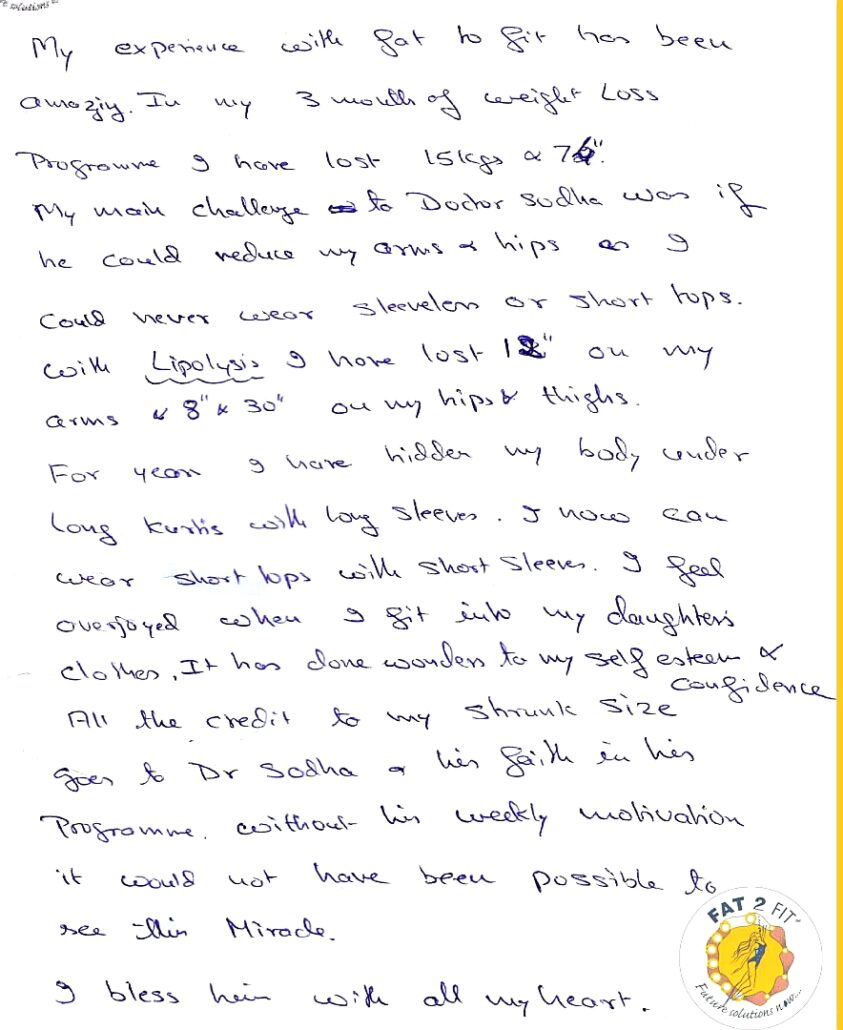 solutions
My experience with fat to fit has been
amaziy. In my 3 month of weight Loss
Programme I have lost 15kgs & 76".
My main challenge to Doctor Sodha was if
he could reduce my arms & hips as I
could never wear sleeveless or short tops.
with Lipolysis I have lost 12" on my
arms & 8" & 30" on my hips & thighs.
For years I have hidden my body under
long kurtis with long sleeves. I now can
wear short tops with short sleeves. I feel
overjoyed when I fit into my daughters
clothes. It has done wonders to my self esteem &
confidence
All the credit to my shrunk size
goes to Dr Sodha & his faith in his
Programme. without his weekly motivation
it would not have been possible to
see this Miracle.
I bless him with all my heart.
FAT 2 FIT
Future solutions now...